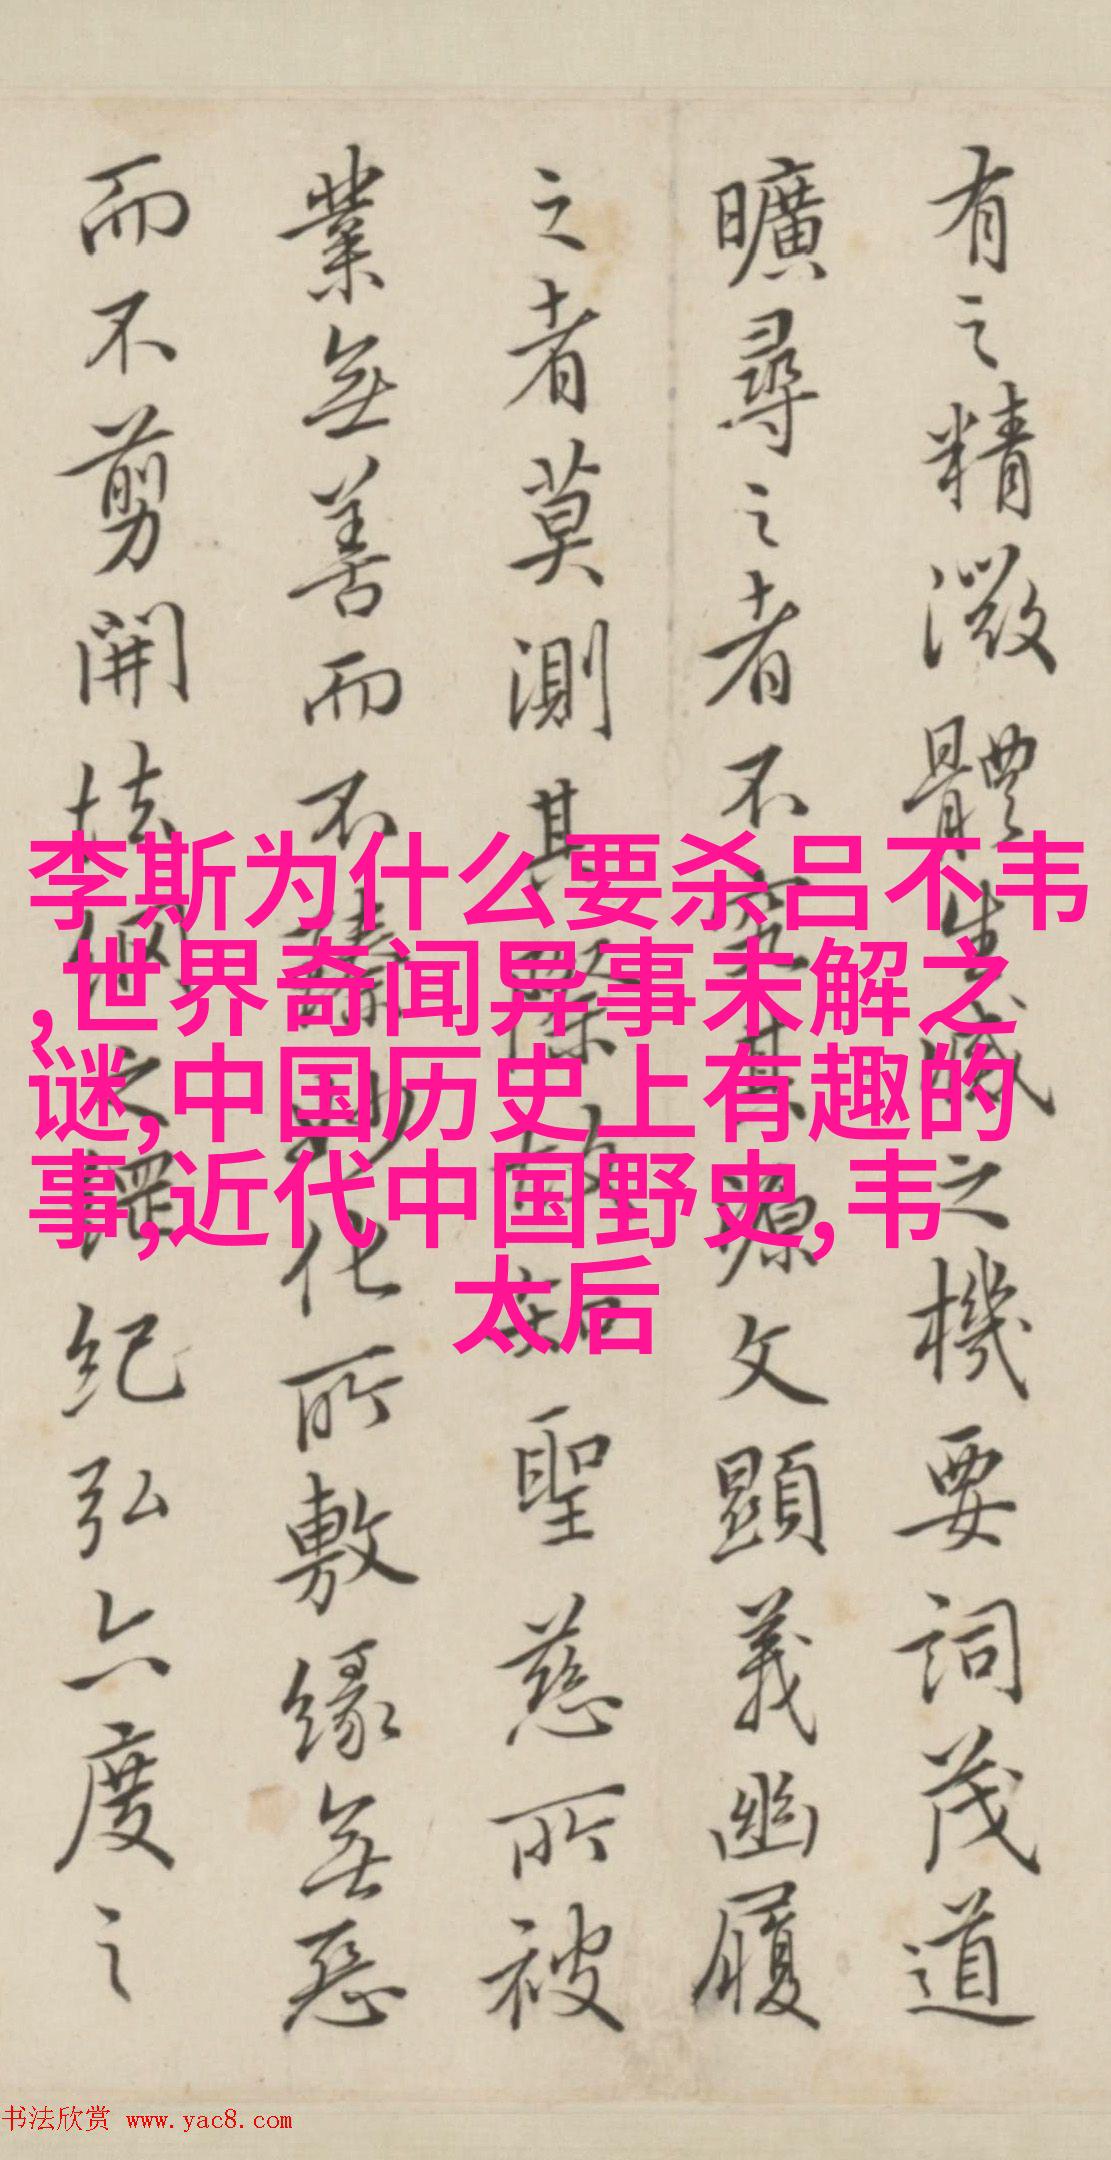 有之精微體生滅之機要詞茂道
曠尋之者不究其源文顯義幽履
之者莫測其際故知聖慈所被
業無善而不臻妙化所敷緣無惡
而不剪開法網之綱紀弘六度之
李斯为什么要杀吕不韦
,世界奇闻异事未解之
谜,中国历史上有趣的
事,近代中国野史,韦
太后
书法欣赏 www.yac8.com